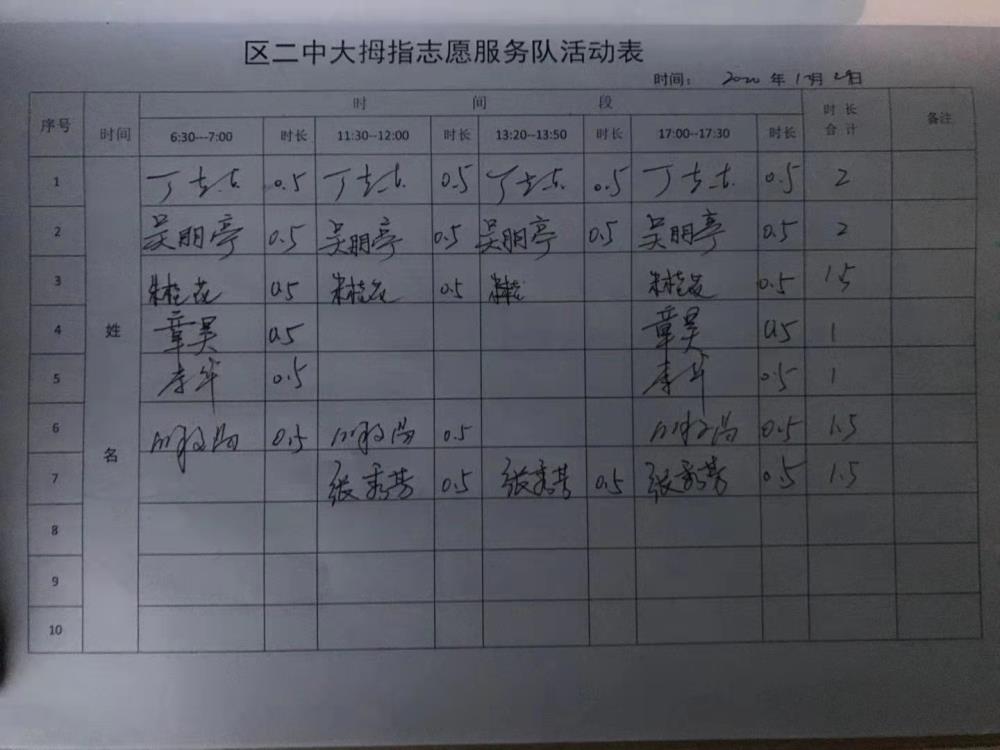 区二中大拇指志愿服务队活动表
时间： 2020 年 1 月 日
序号 时间 时 间 段 时 长 合 计 备注
6:30---7:00 时长 11:30--12:00 时长 13:20--13:50 时长 17:00--17:30 时长
姓 名
1 丁 0.5 丁 0.5 丁 0.5 丁 0.5 2
2 吴明亭 0.5 吴明亭 0.5 吴明亭 0.5 吴明亭 0.5 2
3 朱桂花 0.5 朱桂花 0.5 朱桂花 0.5 1.5
4 章昊 0.5 章昊 0.5 1
5 李 0.5 李 0.5 1
6 0.5 0.5 0.5 1.5
7 张秀芳 0.5 张秀芳 0.5 张秀芳 0.5 1.5
8
9
10